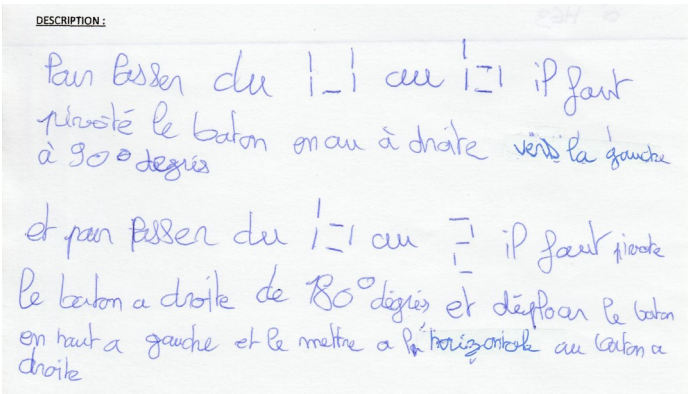 DESCRIPTION :
Pour Passer du |_| au il faut
pivoté le baton en au à droite vers la gauche
à 90° degrés
et pour passer du au il faut pivote
le baton a droite de 180° dégrés et déplacer le baton
en haut a gauche et le mettre a la horizontale au baton a
droite